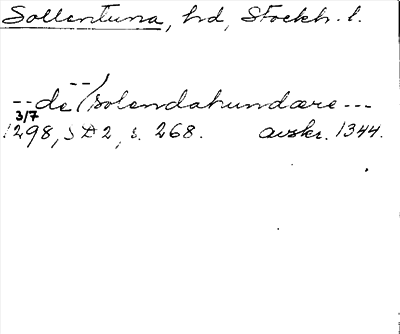 Sollentuna, hd, Stockh. l.
-- de /solendahundære ---
3/7
1298, SD 2, s. 268. avskr. 1344.